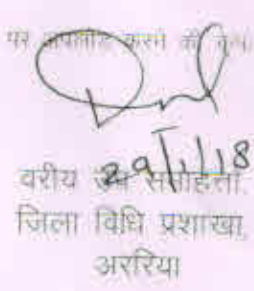 पर अपलोड करने की कृपा
29/1/18
वरीय उप समाहर्ता,
जिला विधि प्रशाखा,
अररिया